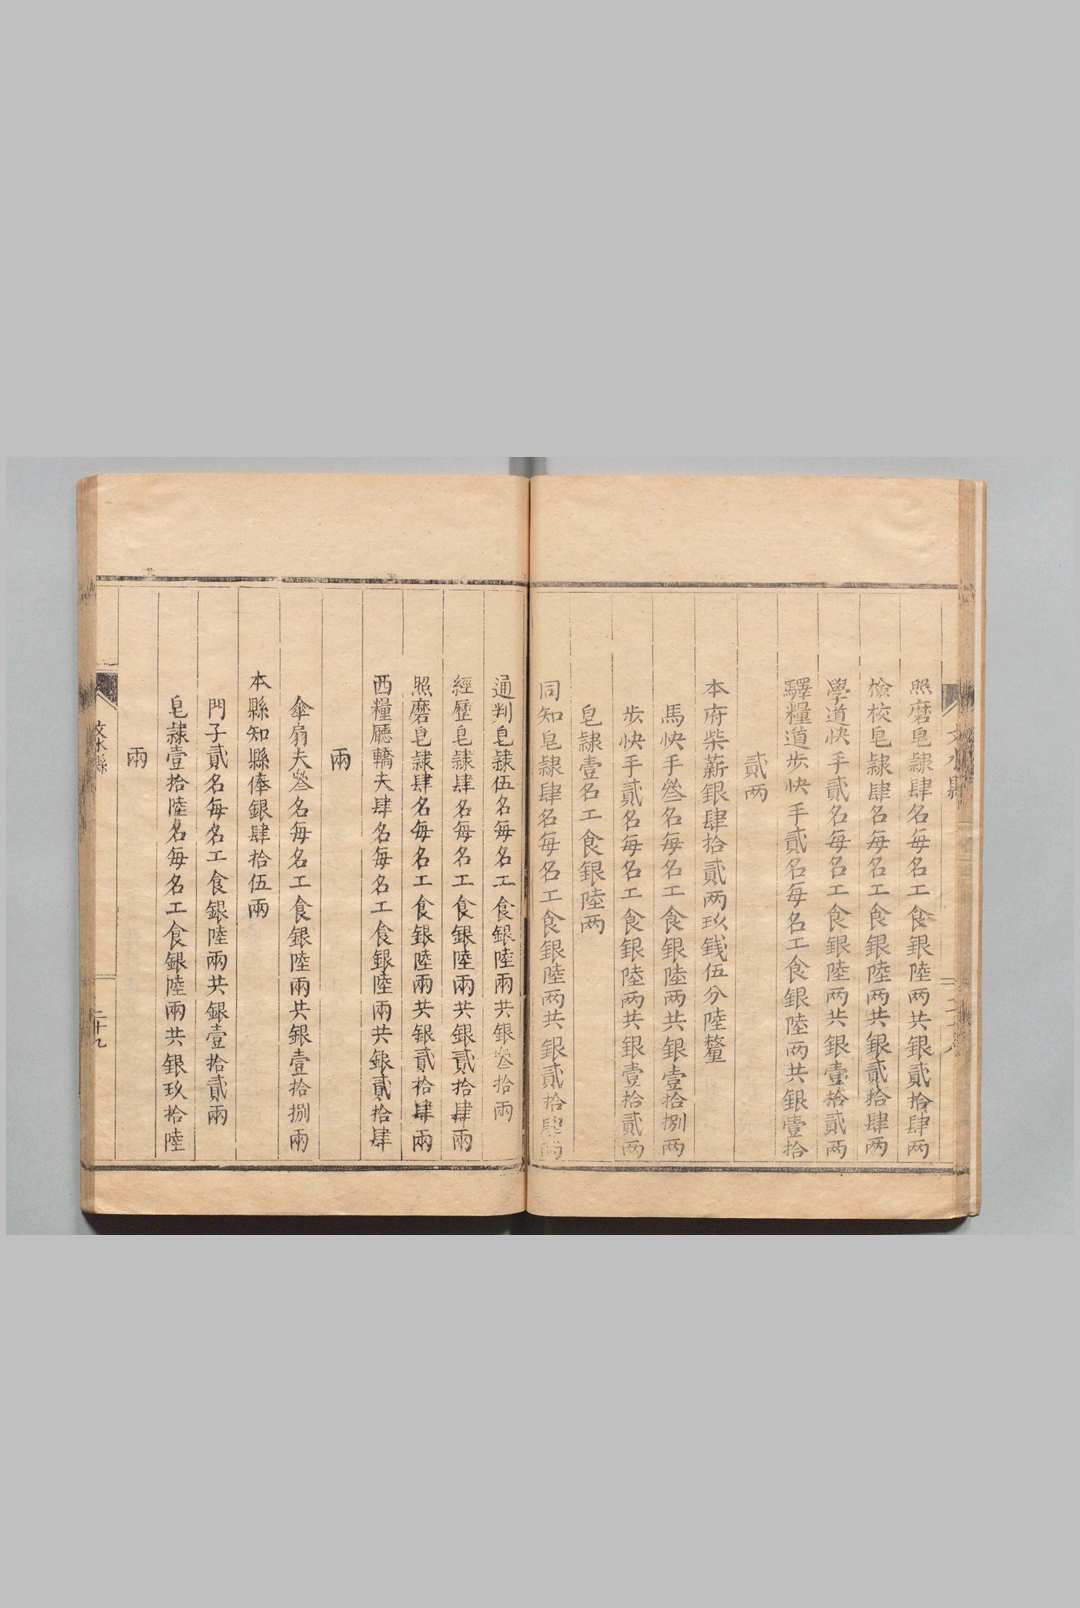 照磨皂隷肆名每名工食銀陸两共銀貳拾肆两
檢校皂隷肆名每名工食銀陸两共銀貳拾肆两
學道快手貳名每名工食銀陸两共銀壹拾貳两
驛糧道步快手貳名每名工食銀陸两共銀壹拾
貳两
本府柴薪銀肆拾貳两玖錢伍分陸釐
馬快手叄名每名工食銀陸两共銀壹拾捌两
步快手貳名每名工食銀陸两共銀壹拾貳两
皂隷壹名工食銀陸两
同知皂隷肆名每名工食銀陸两共銀貳拾肆两
通判皂隷伍名每名工食銀陸兩共銀叄拾兩
經歷皂隷肆名每名工食銀陸兩共銀貳拾肆兩
照磨皂隷肆名每名工食銀陸兩共銀貳拾肆兩
西糧廳轎夫肆名每名工食銀陸兩共銀貳拾肆
兩
傘扇夫叄名每名工食銀陸兩共銀壹拾捌兩
本縣知縣俸銀肆拾伍兩
門子貳名每名工食銀陸兩共銀壹拾貳兩
皂隷壹拾陸名每名工食銀陸兩共銀玖拾陸
兩
文水縣
二十九